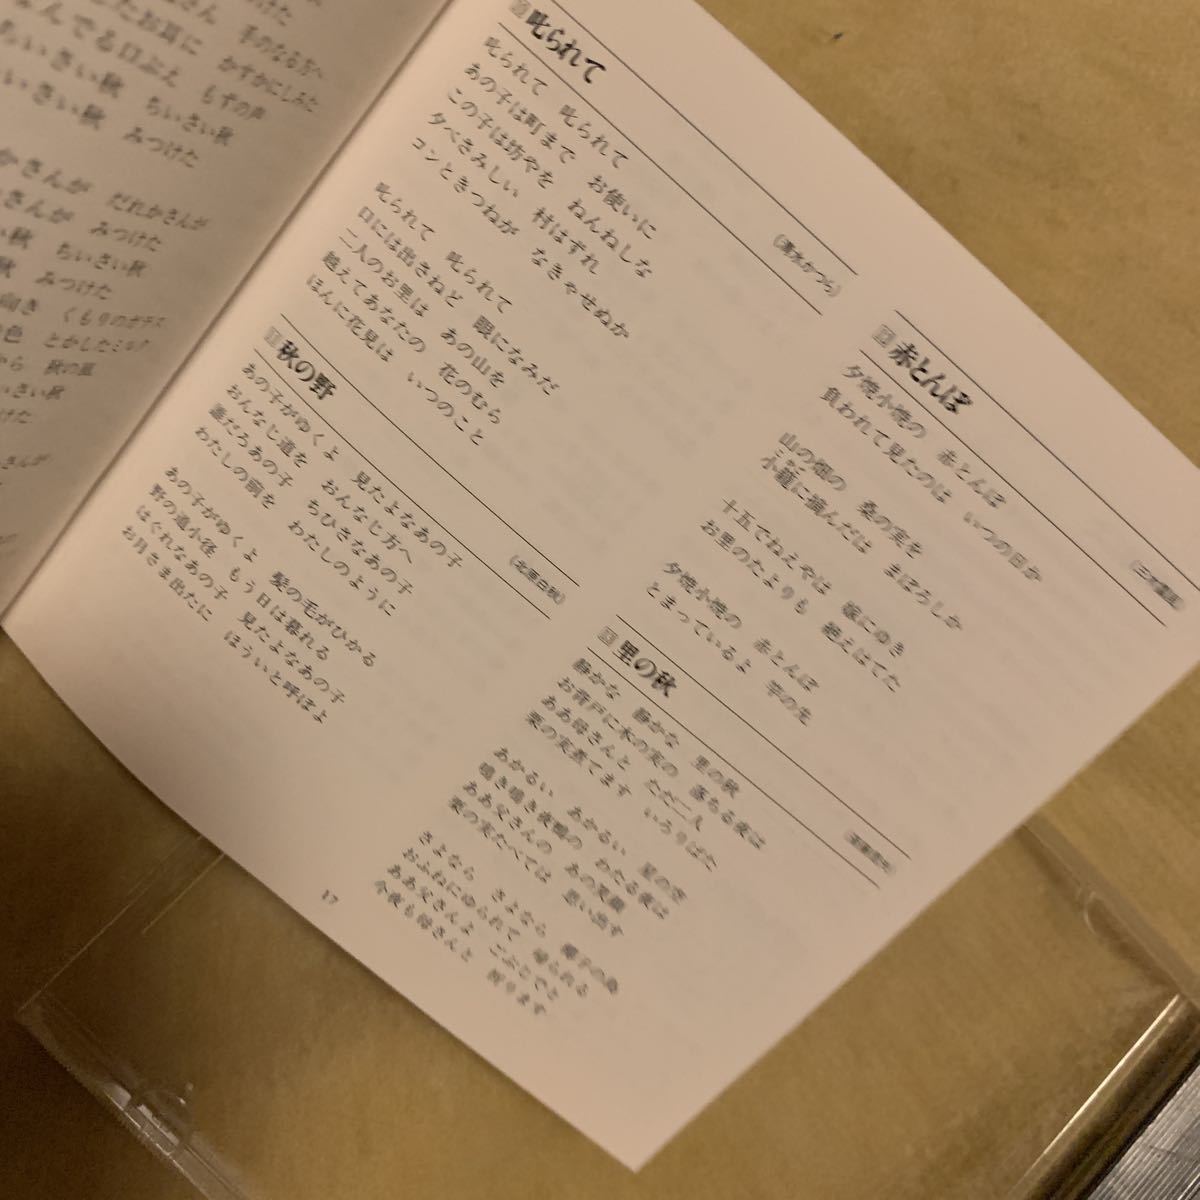 手のなる方へ
お耳に かすかにしみた
でる口ぶえ もずの声
ちいさい秋 ちいさい秋
さい秋 みつけた
かさんが だれかさんが
さんが みつけた
い秋 ちいさい秋
秋 みつけた
向き くもりのガラス
色 とかしたミルク
から 秋の風
いさい秋
けた
さんが
叱られて
(清水かつら)
叱られて 叱られて
あの子は町まで お使いに
この子は坊やを ねんねしな
夕べさみしい 村はずれ
コンときつねが なきゃせぬか
叱られて 叱られて
口には出さねど 眼になみだ
二人のお里は あの山を
越えてあなたの 花のむら
ほんに花見は いつのこと
秋の野
(北原白秋)
あの子がゆくよ 見たよなあの子
おんなじ道を おんなじ方へ
誰だろあの子 ちひさなあの子
わたしの前を わたしのように
あの子がゆくよ 髪の毛がひかる
野の道小径 もう日は暮れる
はぐれなあの子 見たよなあの子
お月さま出たに ほういと呼ぼよ
赤とんぼ
(三木露風)
夕焼小焼の 赤とんぼ
負われて見たのは いつの日か
山の畑の 桑の実を
小籠に摘んだは まぼろしか
十五でねえやは 嫁にゆき
お里のたよりも 絶えはてた
夕焼小焼の 赤とんぼ
とまっているよ 竿の先
里の秋
静かな 静かな 里の秋
お背戸に木の実の 落ちる夜は
ああ母さんと ただ二人
栗の実煮てます いろりばた
あかるい あかるい 星の空
鳴き鳴き夜鴨の わたる夜は
ああ父さんの あの笑顔
栗の実たべては 思い出す
さよなら さよなら 椰子の島
おふねにゆられて 帰られる
ああ父さんよ ごぶじでと
今夜も母さんと 祈ります
17